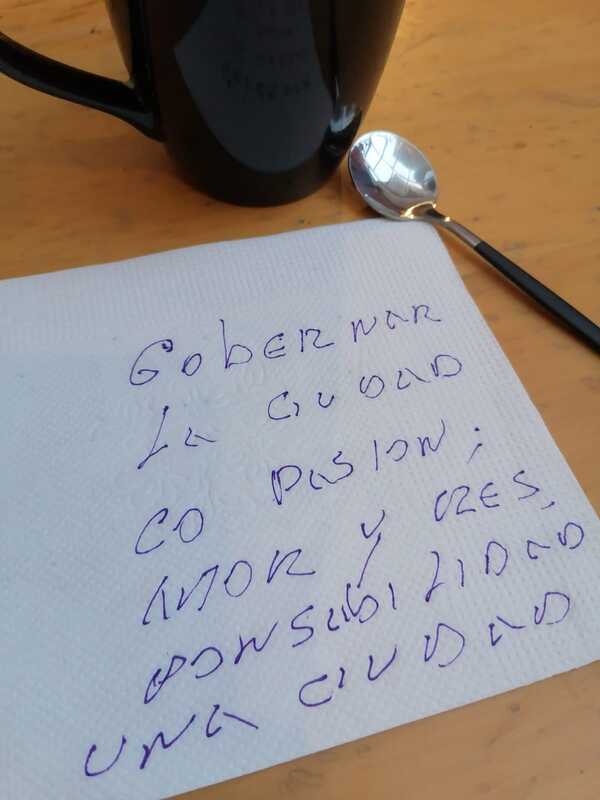 GobERNAR
LA CIUDAD
CO PASION;
AMOR Y RES
PONSABILIDAD
UNA CIUDAD